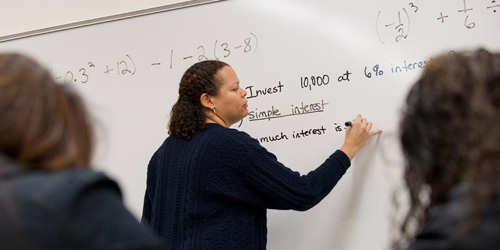 0.3² + 12) - 1 - 2(3 - 8)
(-1/2)³ + 1/6 ÷
Invest 10,000 at 6% interes
simple interest
much interest is